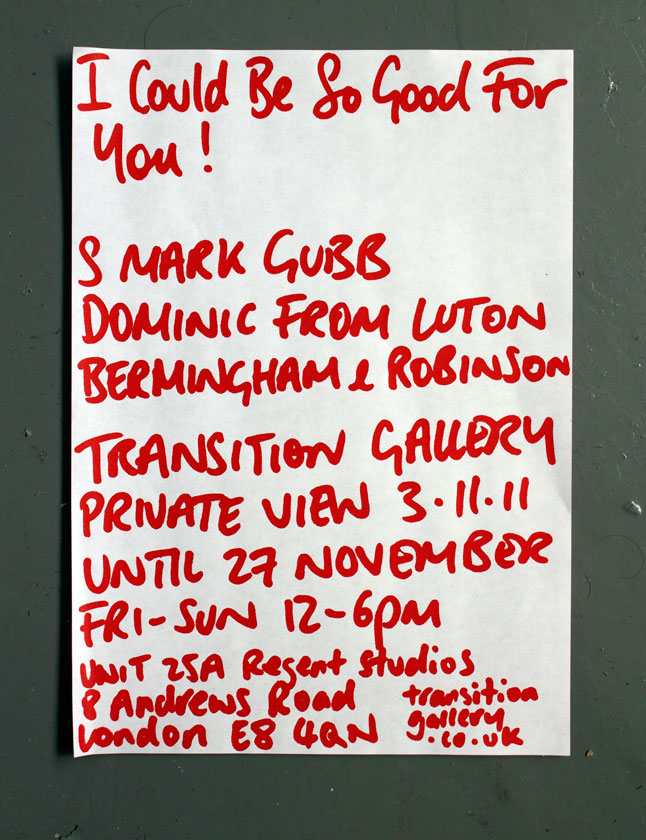 I Could Be So Good For
You!
S MARK GUBB
DOMINIC FROM LUTON
BERMINGHAM & ROBINSON
TRANSITION GALLERY
PRIVATE VIEW 3.11.11
UNTIL 27 NOVEMBER
FRI-SUN 12-6PM
UNIT 25A Regent Studios
8 Andrews Road
London E8 4QN
transition
gallery
.co.uk